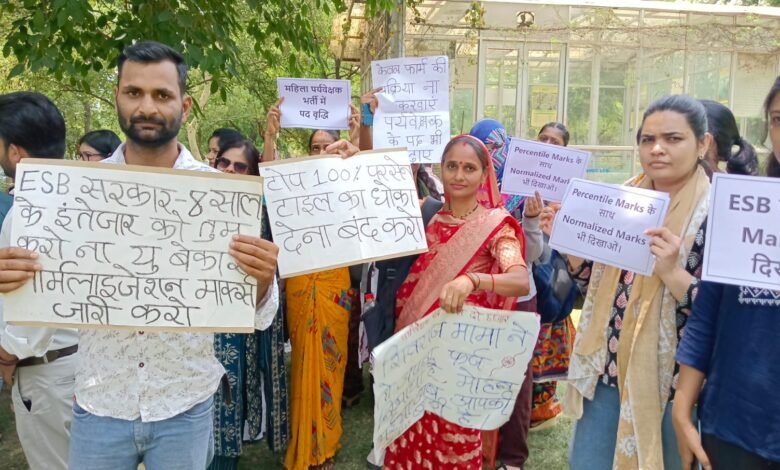 ESB सरकार-8 साल
के इंतेजार को तुम
करो ना यु बेकार
र्मिलाइजेशन मार्क्स
जारी करो
महिला पर्यवेक्षक
भर्ती में
पद वृद्धि
केवल फार्म की
क्रिया ना
करवाए
पर्यवेक्षक
के पद भी
बढ़ाए
100% परसे
टाइल का धोका
देना बंद करो
Percentile Marks के
साथ
Normalized Marks
भी दिखाओ।
Percentile Marks के
साथ
Normalized Marks
भी दिखाओ।
ESB
Ma
दिख
शिवराज मामा ने
फर्ज
मोहन
आपकी
है